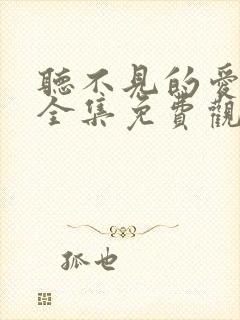 聽不見的愛
全集免費觀
孤也